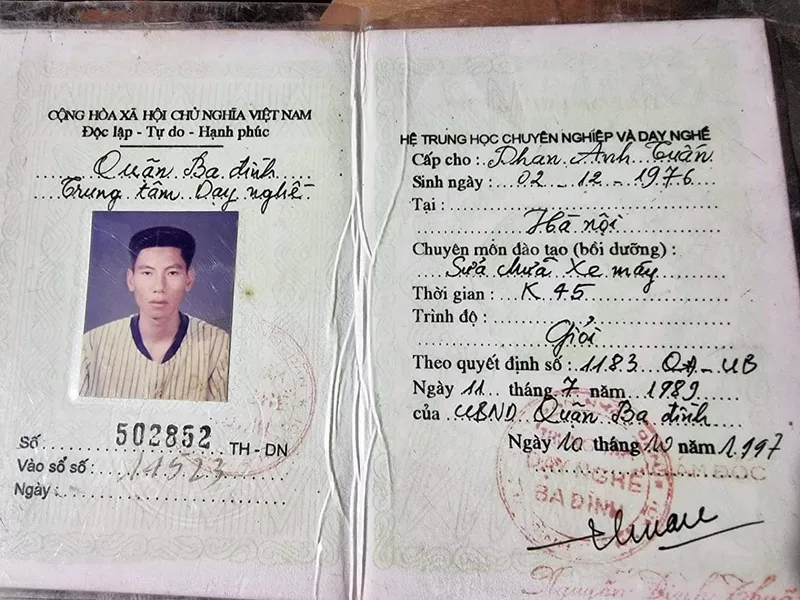 CỘNG HÒA XÃ HỘI CHỦ NGHĨA VIỆT NAM
Độc lập - Tự do - Hạnh phúc
Quận Ba đình
Trung tâm Dạy nghề
Số 502852 TH - DN
Vào sổ số : 14523
Ngày :
HỆ TRUNG HỌC CHUYÊN NGHIỆP VÀ DẠY NGHỀ
Cấp cho : Phan Anh Tuấn
Sinh ngày : 02 - 12 - 1976
Tại :
Hà nội
Chuyên môn đào tạo (bồi dưỡng) :
Sửa chữa Xe máy
Thời gian : K 45
Trình độ :
Giỏi
Theo quyết định số : 1183 QĐ - UB
Ngày 11 tháng 7 năm 1989
của UBND Quận Ba đình
Ngày 10 tháng 10 năm 1997
GIÁM ĐỐC
DẠY NGHỀ
BA ĐÌNH
Nguyễn Đình